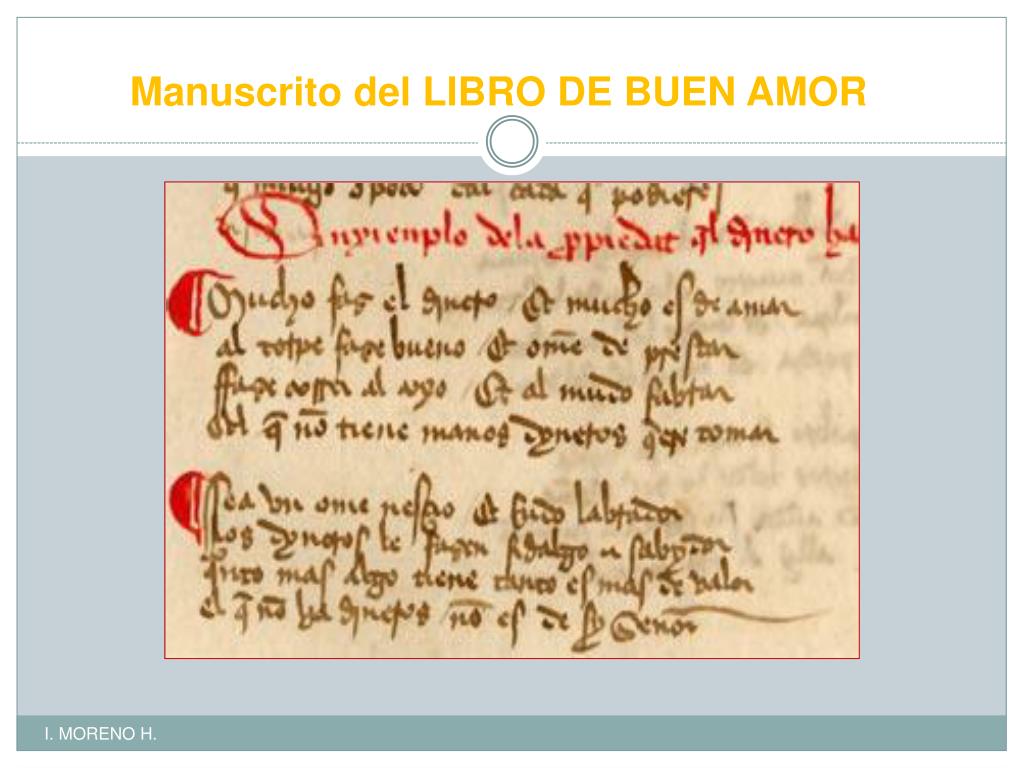 Manuscrito del LIBRO DE BUEN AMOR
q̃ mucho o poco cada q̃ podiere
Enxienplo dela ppiedat q̃l dinero ha
Mucho faz el dinero Et mucho es de amar
al torpe faze bueno Et ome de prestar
ffaze correr al coxo Et al mudo fablar
El q̃ nõ tiene manos dyneros q̃ere tomar
Sea vn ome nesçio Et Rudo labrador
Los dyneros le fazen fidalgo e sabydor
q̃nto mas algo tiene tanto es mas de valor
el q̃ nõ ha dineros nõ es de sy Señor
I. MORENO H.